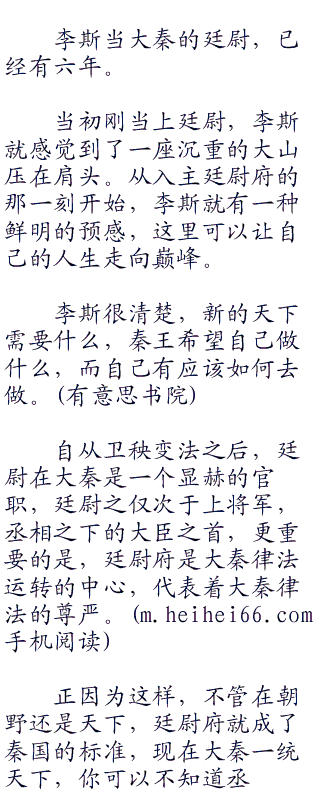 李斯当大秦的廷尉，已
经有六年。
当初刚当上廷尉，李斯
就感觉到了一座沉重的大山
压在肩头。从入主廷尉府的
那一刻开始，李斯就有一种
鲜明的预感，这里可以让自
己的人生走向巅峰。
李斯很清楚，新的天下
需要什么，秦王希望自己做
什么，而自己有应该如何去
做。(有意思书院)
自从卫秧变法之后，廷
尉在大秦是一个显赫的官
职，廷尉之仅次于上将军，
丞相之下的大臣之首，更重
要的是，廷尉府是大秦律法
运转的中心，代表着大秦律
法的尊严。(m.heihei66.com
手机阅读)
正因为这样，不管在朝
野还是天下，廷尉府就成了
秦国的标准，现在大秦一统
天下，你可以不知道丞